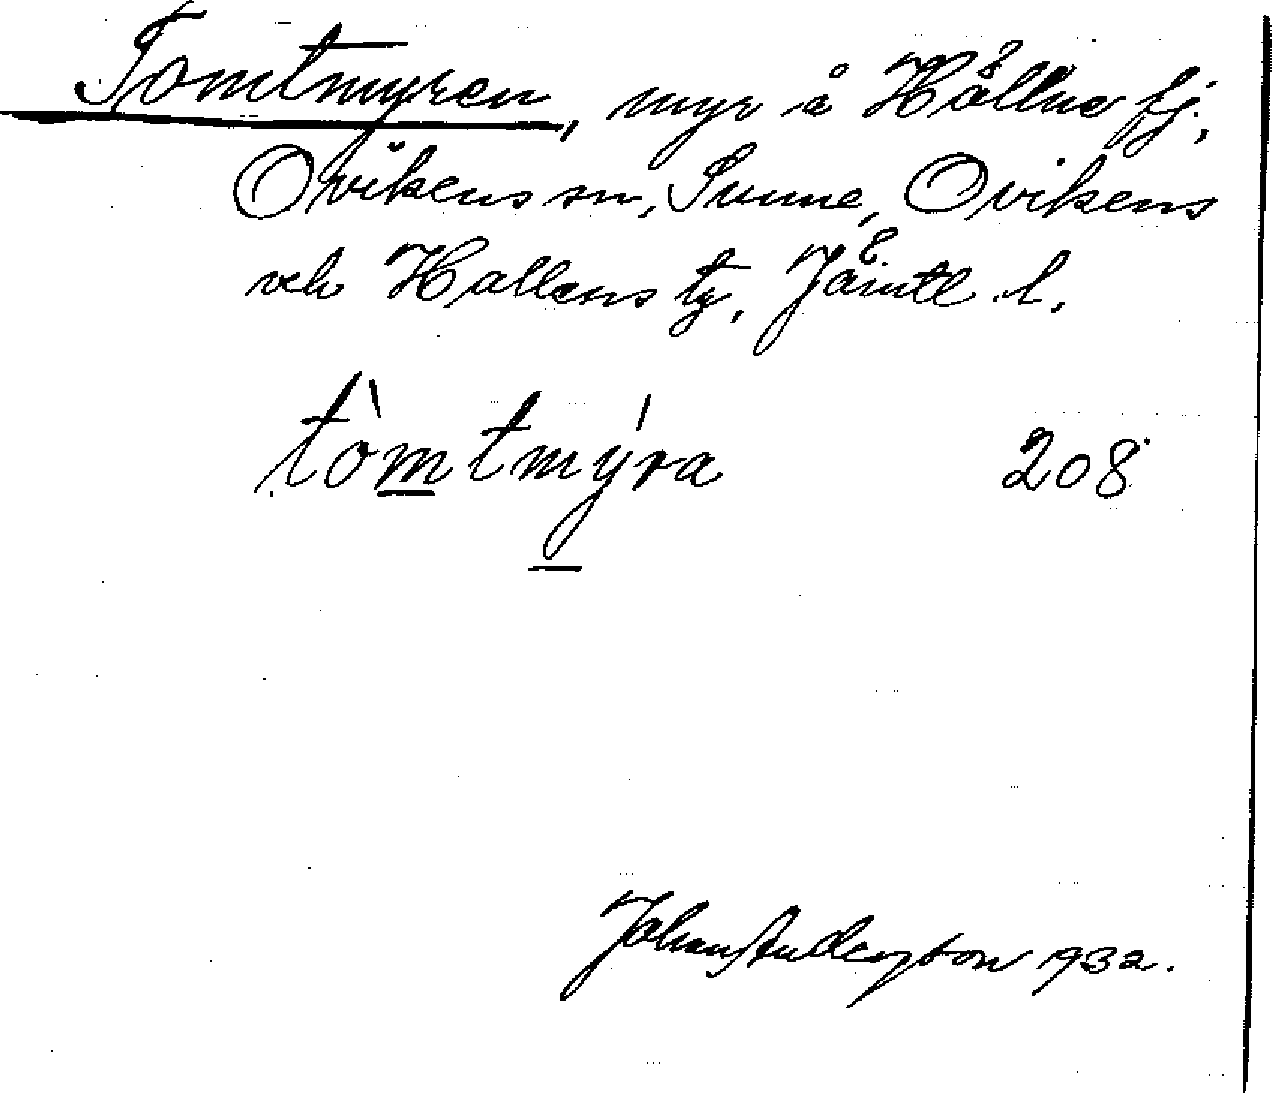 Tomtmyren, myr å Hållne fj.,
Ovikens sn, Sunne, Ovikens
och Hallens tg, Jämtl. l.
tòmtmýra 208
Johan Anderzson 1932.